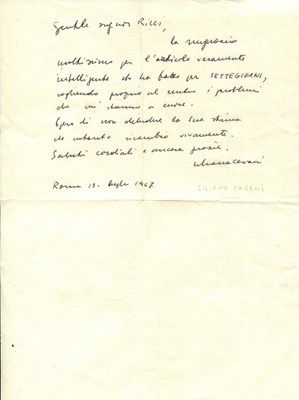 Gentile signor Ricci,
la ringrazio
moltissimo per l'articolo veramente
intelligente che ha fatto per SETTEGIORNI,
cogliendo proprio al centro i problemi
che mi stanno a cuore.
Spero di non deludere la Sua stima
che intanto ricambio vivamente.
Saluti cordiali e ancora grazie.
Liliana Cavani
Roma 13 - luglio 1967
LILIANA CAVANI